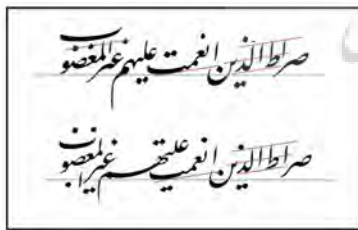 صراط الذین انعمت علیهم غیر المغضوب
صراط الذین انعمت علیهم غیر المغضوب